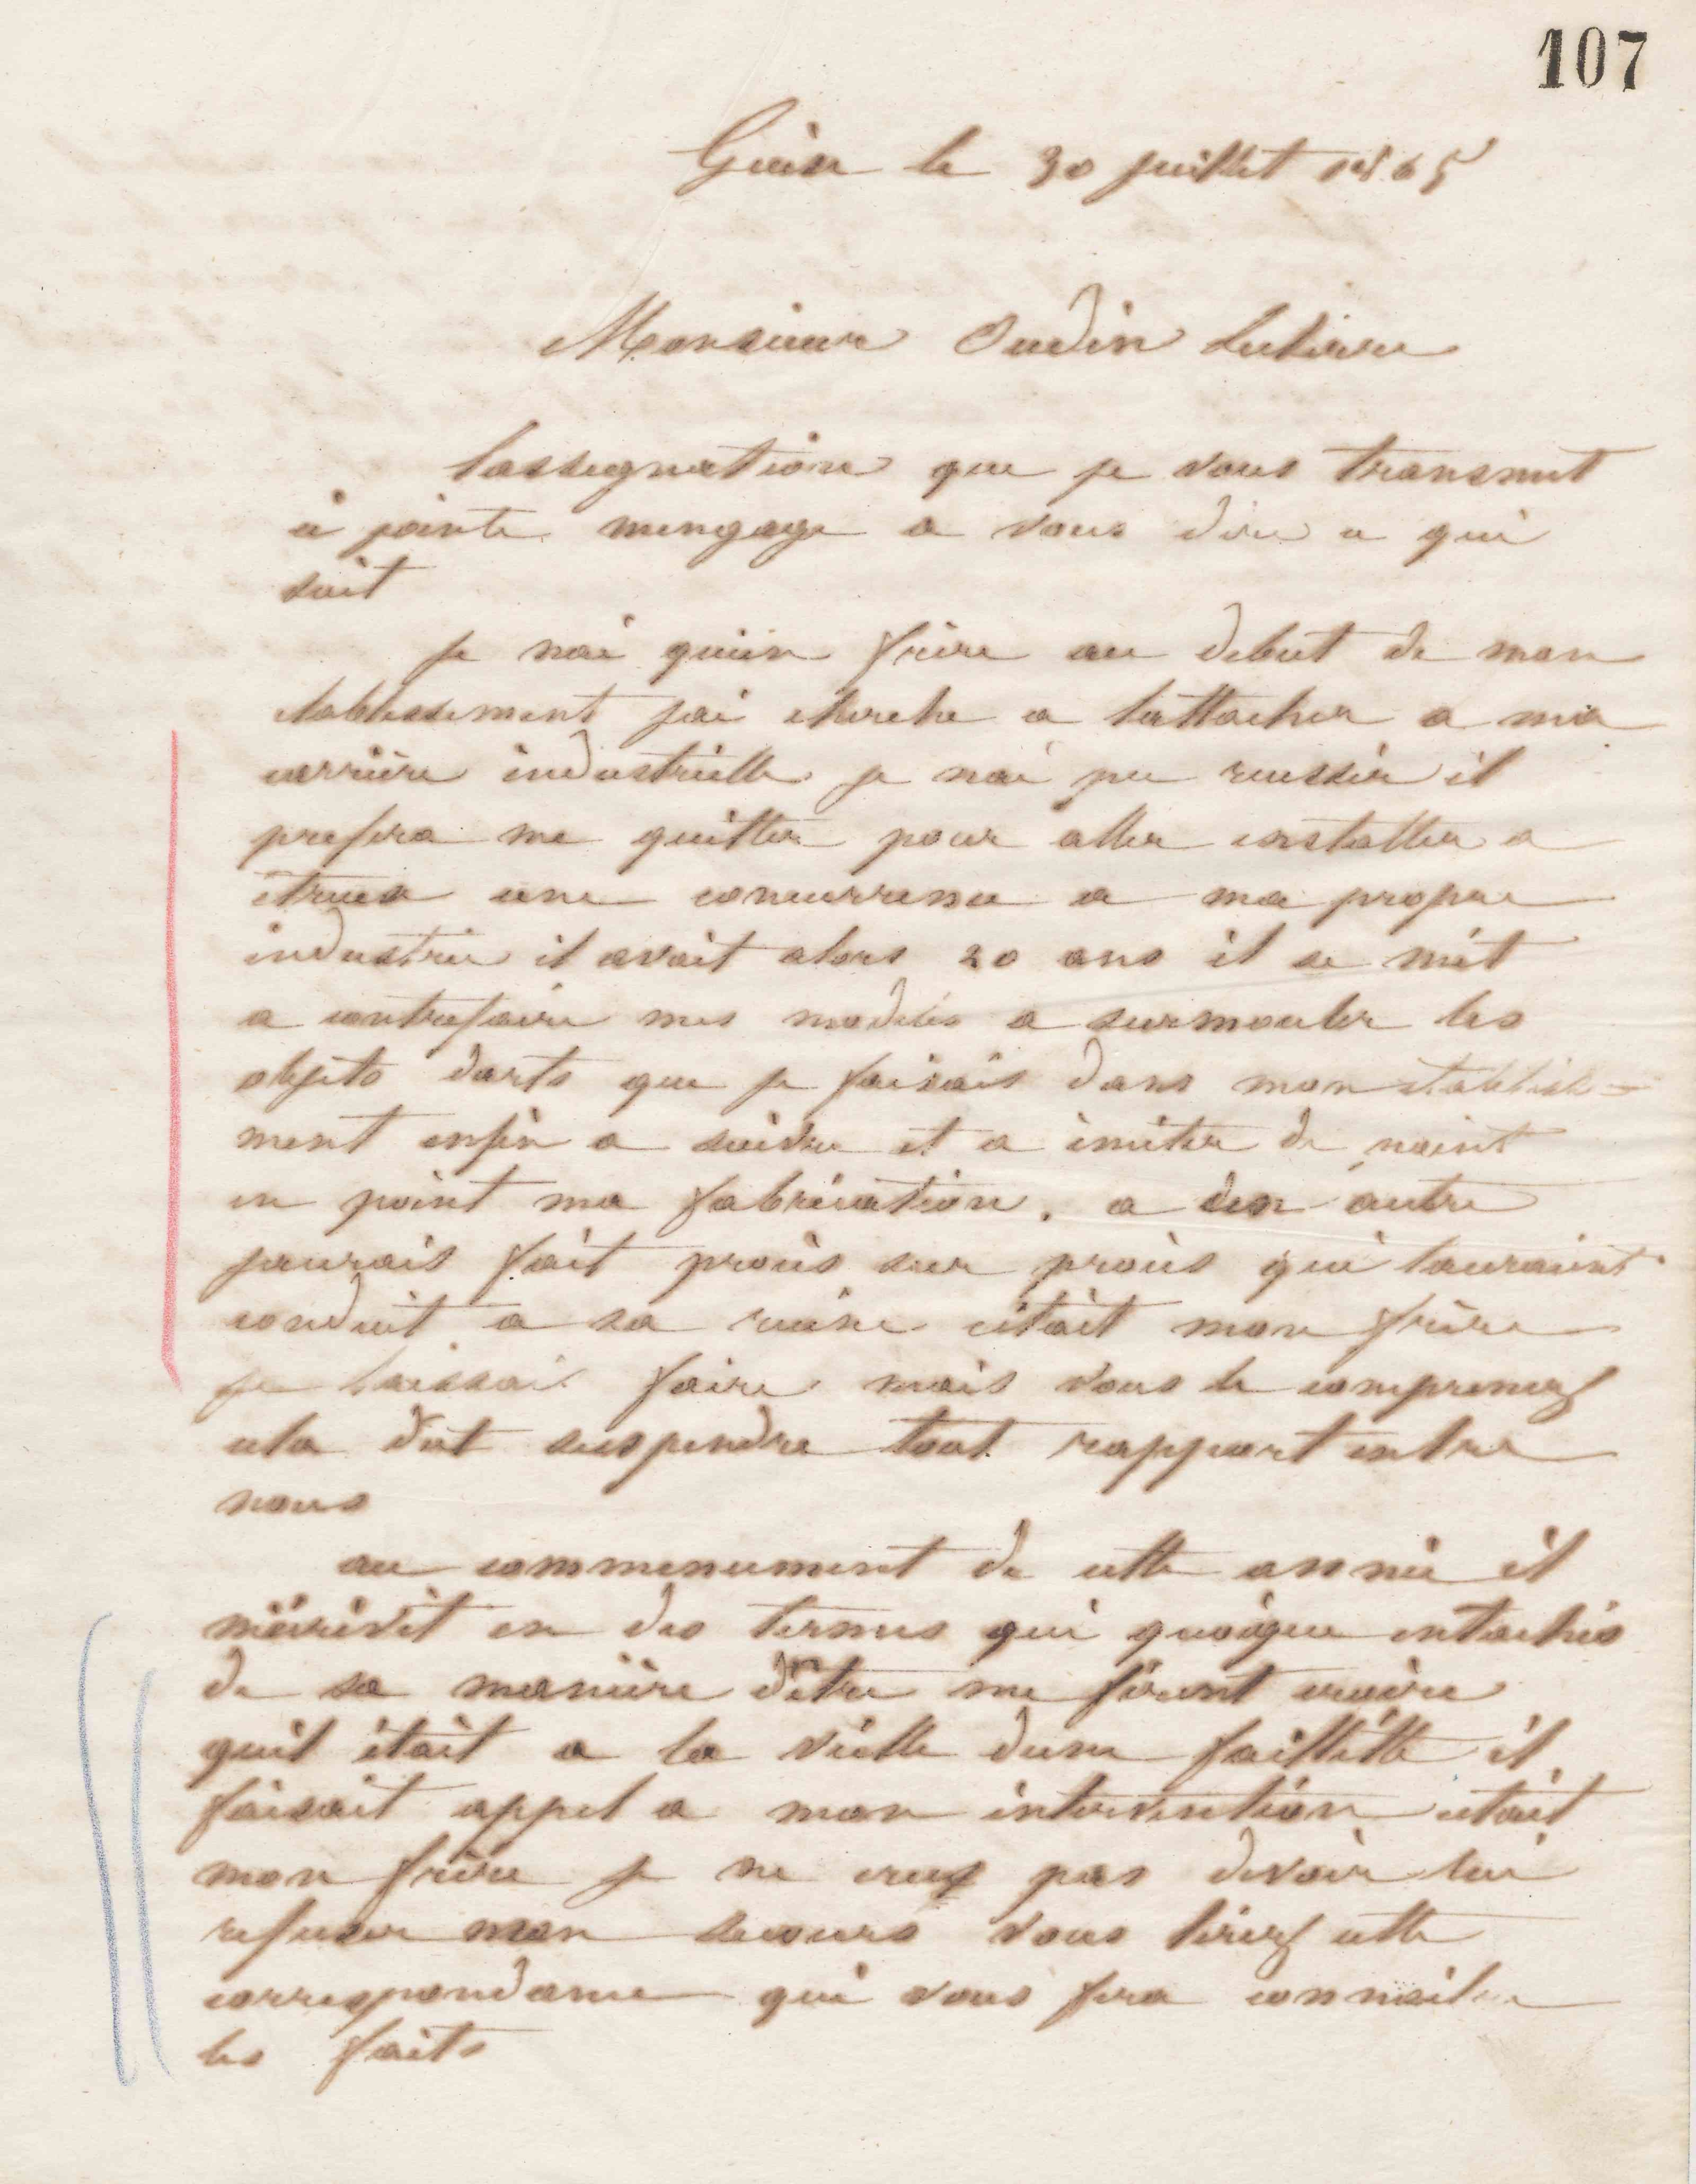 107
Guise le 30 juillet 1865
Monsieur Oudin Leclere
lassegnation que je vous transmet
ci jointe mengage a vous dire ce qui
suit
je nai quun frère au debut de mon
etablissement jai cherche a lattacher a ma
carrière industrielle je nai pu reussir il
prefera me quitter pour aller installer a
étreux une concurrence a ma propre
industrie il avait alors 20 ans il se mit
a contrefaire mes modèles a surmouler les
objets darts que je faisais dans mon etablisse=
ment enfin a suivre et a imiter de point
en point ma fabrication. a un autre
jaurais fait procès sur procès qui lauraient
conduit a sa ruine cétait mon frère
je laissai faire mais vous le comprenez
cela dut suspendre tout rapport entre
nous
au commencement de cette année il
mécrivit en des termes qui quoique entachés
de sa manière dêtre me firent croire
quil était a la vielle dune faillitte il
faisait appel a mon intervention cétait
mon frère je ne crus pas devoir lui
refuser mon secours vous lirez cette
correspondance qui vous fera connaitre
les faits